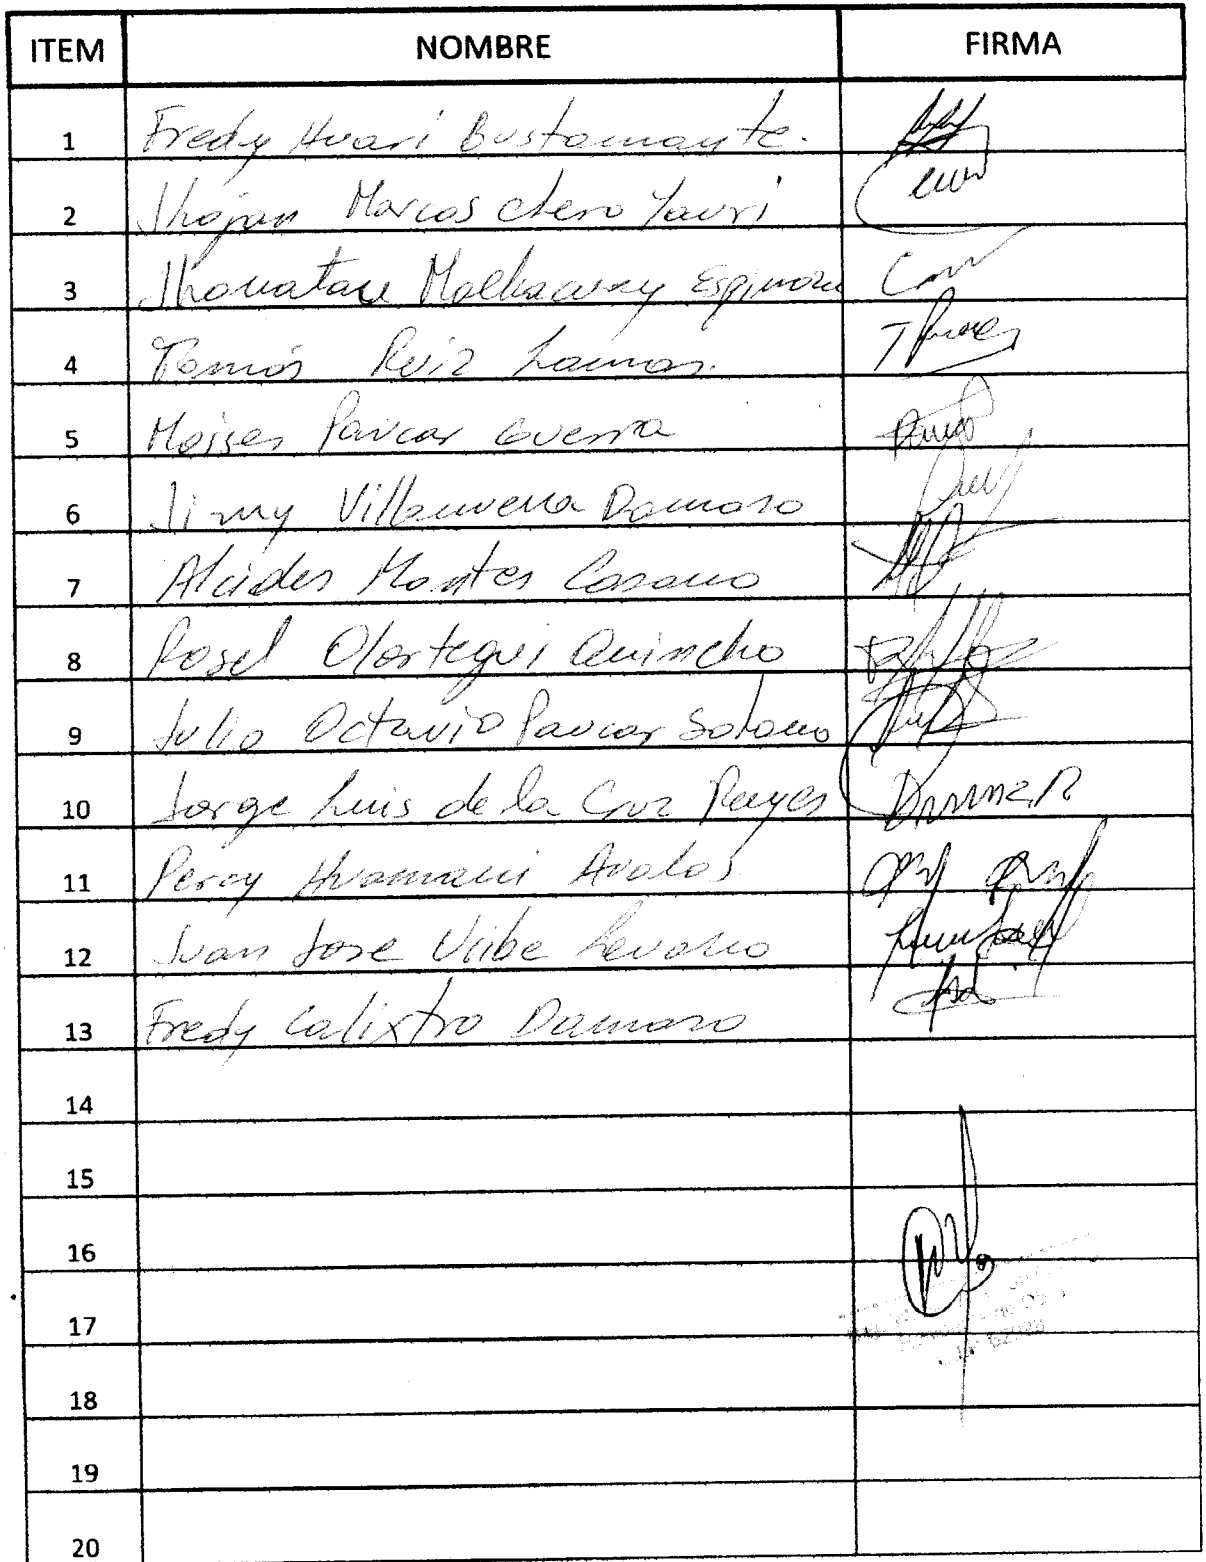 ITEM NOMBRE FIRMA
1 Fredy Huari Bustamante.
2 Jhojan Marcos chero Yauri
3 Jhonatan Espinoza
4 Tomás Ruiz Lamas.
5 Moises Paucar Guerra
6 Jimy Villanueva Damaso
7 Alcides Montes Cosano
8 Rosel Olortegui Quincho
9 Julio Octavio Paucar Solano
10 Jorge Luis de la Cruz Reyes
11 Percy Huamani Avalos
12 Juan Jose Uribe Levano
13 Fredy Calixtro Damaso
14
15
16
17
18
19
20